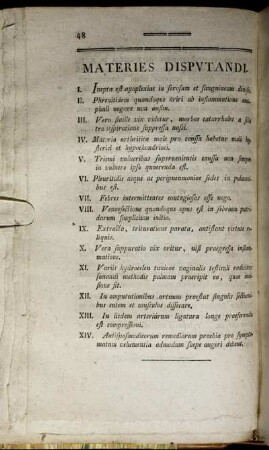 48
MATERIES DISPVTANDI.
I. Inepta est apoplexiae in serosam et sanguineam divisio.
II. Phrenitidem quandoque oriri ab inflammatione encephali negare non ausim.
III. Vero simile vix videtur, morbos catarrhales a sola transpiratione suppressa nasci.
IV. Materia arthritica male pro causa habetur mali hysterici et hypochondriaci.
V. Trismi vulneribus supervenientis causa non semper in vulnere ipso quaerenda est.
VI. Pleuritidis aeque ac peripneumoniae sedes in pulmonibus est.
VII. Febres intermittentes contagiosas esse nego.
VIII. Venaesectione quandoque opus est in febrium putridarum simplicium initio.
IX. Extracta, trituratione parata, antistant virtute reliquis.
X. Vera suppuratio vix oritur, nisi praegressa inflammatione.
XI. Variis hydrocelen tunicae vaginalis testiculi radicitus sanandi methodis palmam praeripit ea, quae incisione fit.
XII. In amputationibus artuum praestat singulis ictibus cutem et musculos dissecare.
XIII. In iisdem arteriarum ligatura longe praeferenda est compressioni.
XIV. Antispasmodicorum remediorum praebia pro symptomatum vehementia admodum saepe augeri debent.